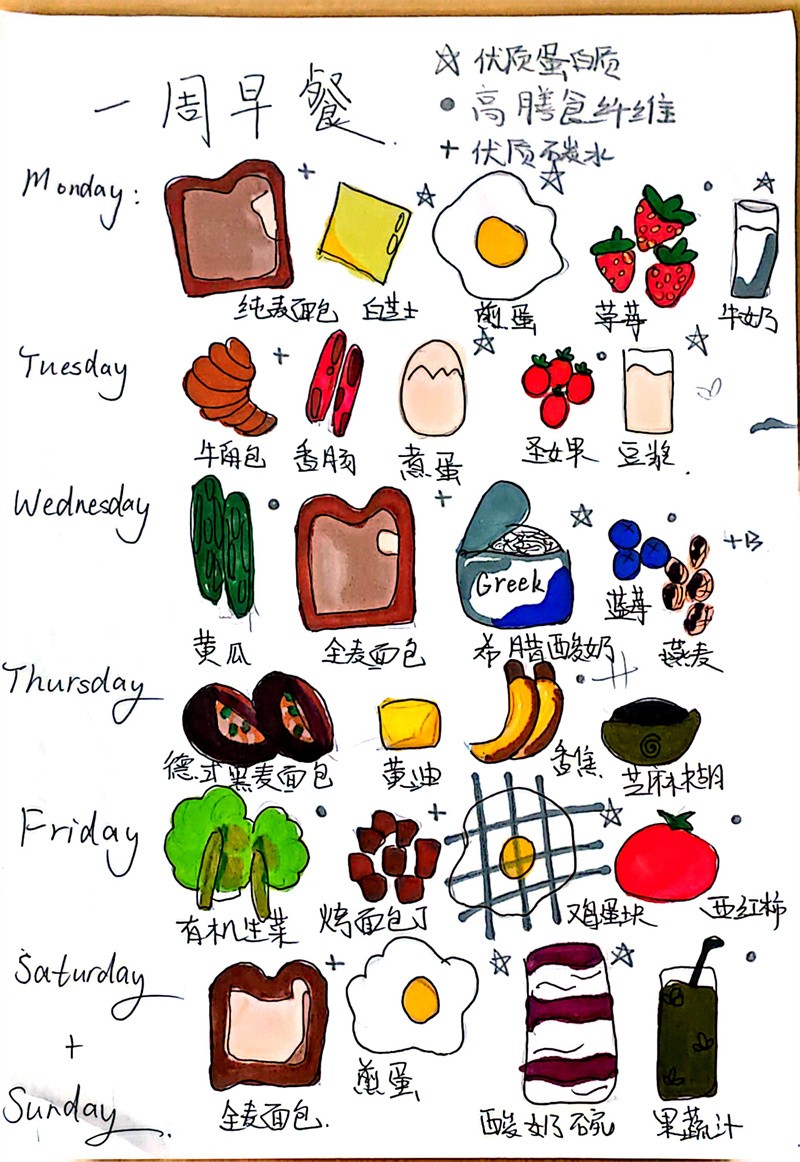 一周早餐
☆ 优质蛋白质
● 高膳食纤维
+ 优质碳水
Monday:
纯麦面包 白芝士 煎蛋 草莓 牛奶
Tuesday
牛角包 香肠 煮蛋 圣女果 豆浆
Wednesday
Greek
黄瓜 全麦面包 希腊酸奶 蓝莓 燕麦
Thursday
德式黑麦面包 黄油 香焦 芝麻糊
Friday
有机生菜 烤面包丁 鸡蛋块 西红柿
Saturday
+
Sunday
全麦面包. 煎蛋 酸奶碗 果蔬汁